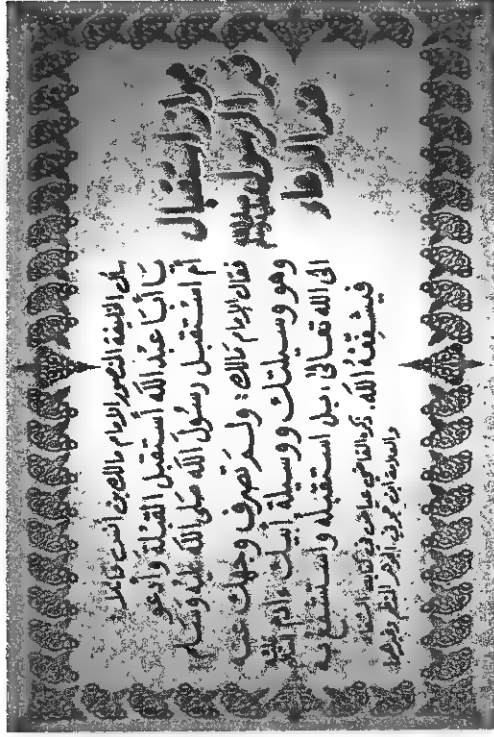 جواز استقبال
قبر الرسول ﷺ
عند الدعاء
سأل الخليفة المنصور الإمام مالك بن أنس قائلا:
يَا أَبَا عَبْدَ اللَّه أَسْتَقْبِل القِبْلَةَ وَأَدْعُو
أَم أَسْتَقْبِل رَسُولَ اللَّه صَلَّى اللَّهُ عَلَيْهِ وَسَلَّم
فقال الإمام مالك: ولمَ تصرف وجهك عنه
وهو وسيلتك ووسيلة أبيك ءادم
الى الله تعالى، بل استقبله واستشفع به
فيشفّعهُ الله. ذكره القاضي عياض في كتابه الشفاء
والعلامة ابن حجر في الجوهر المنظم وغيرهما